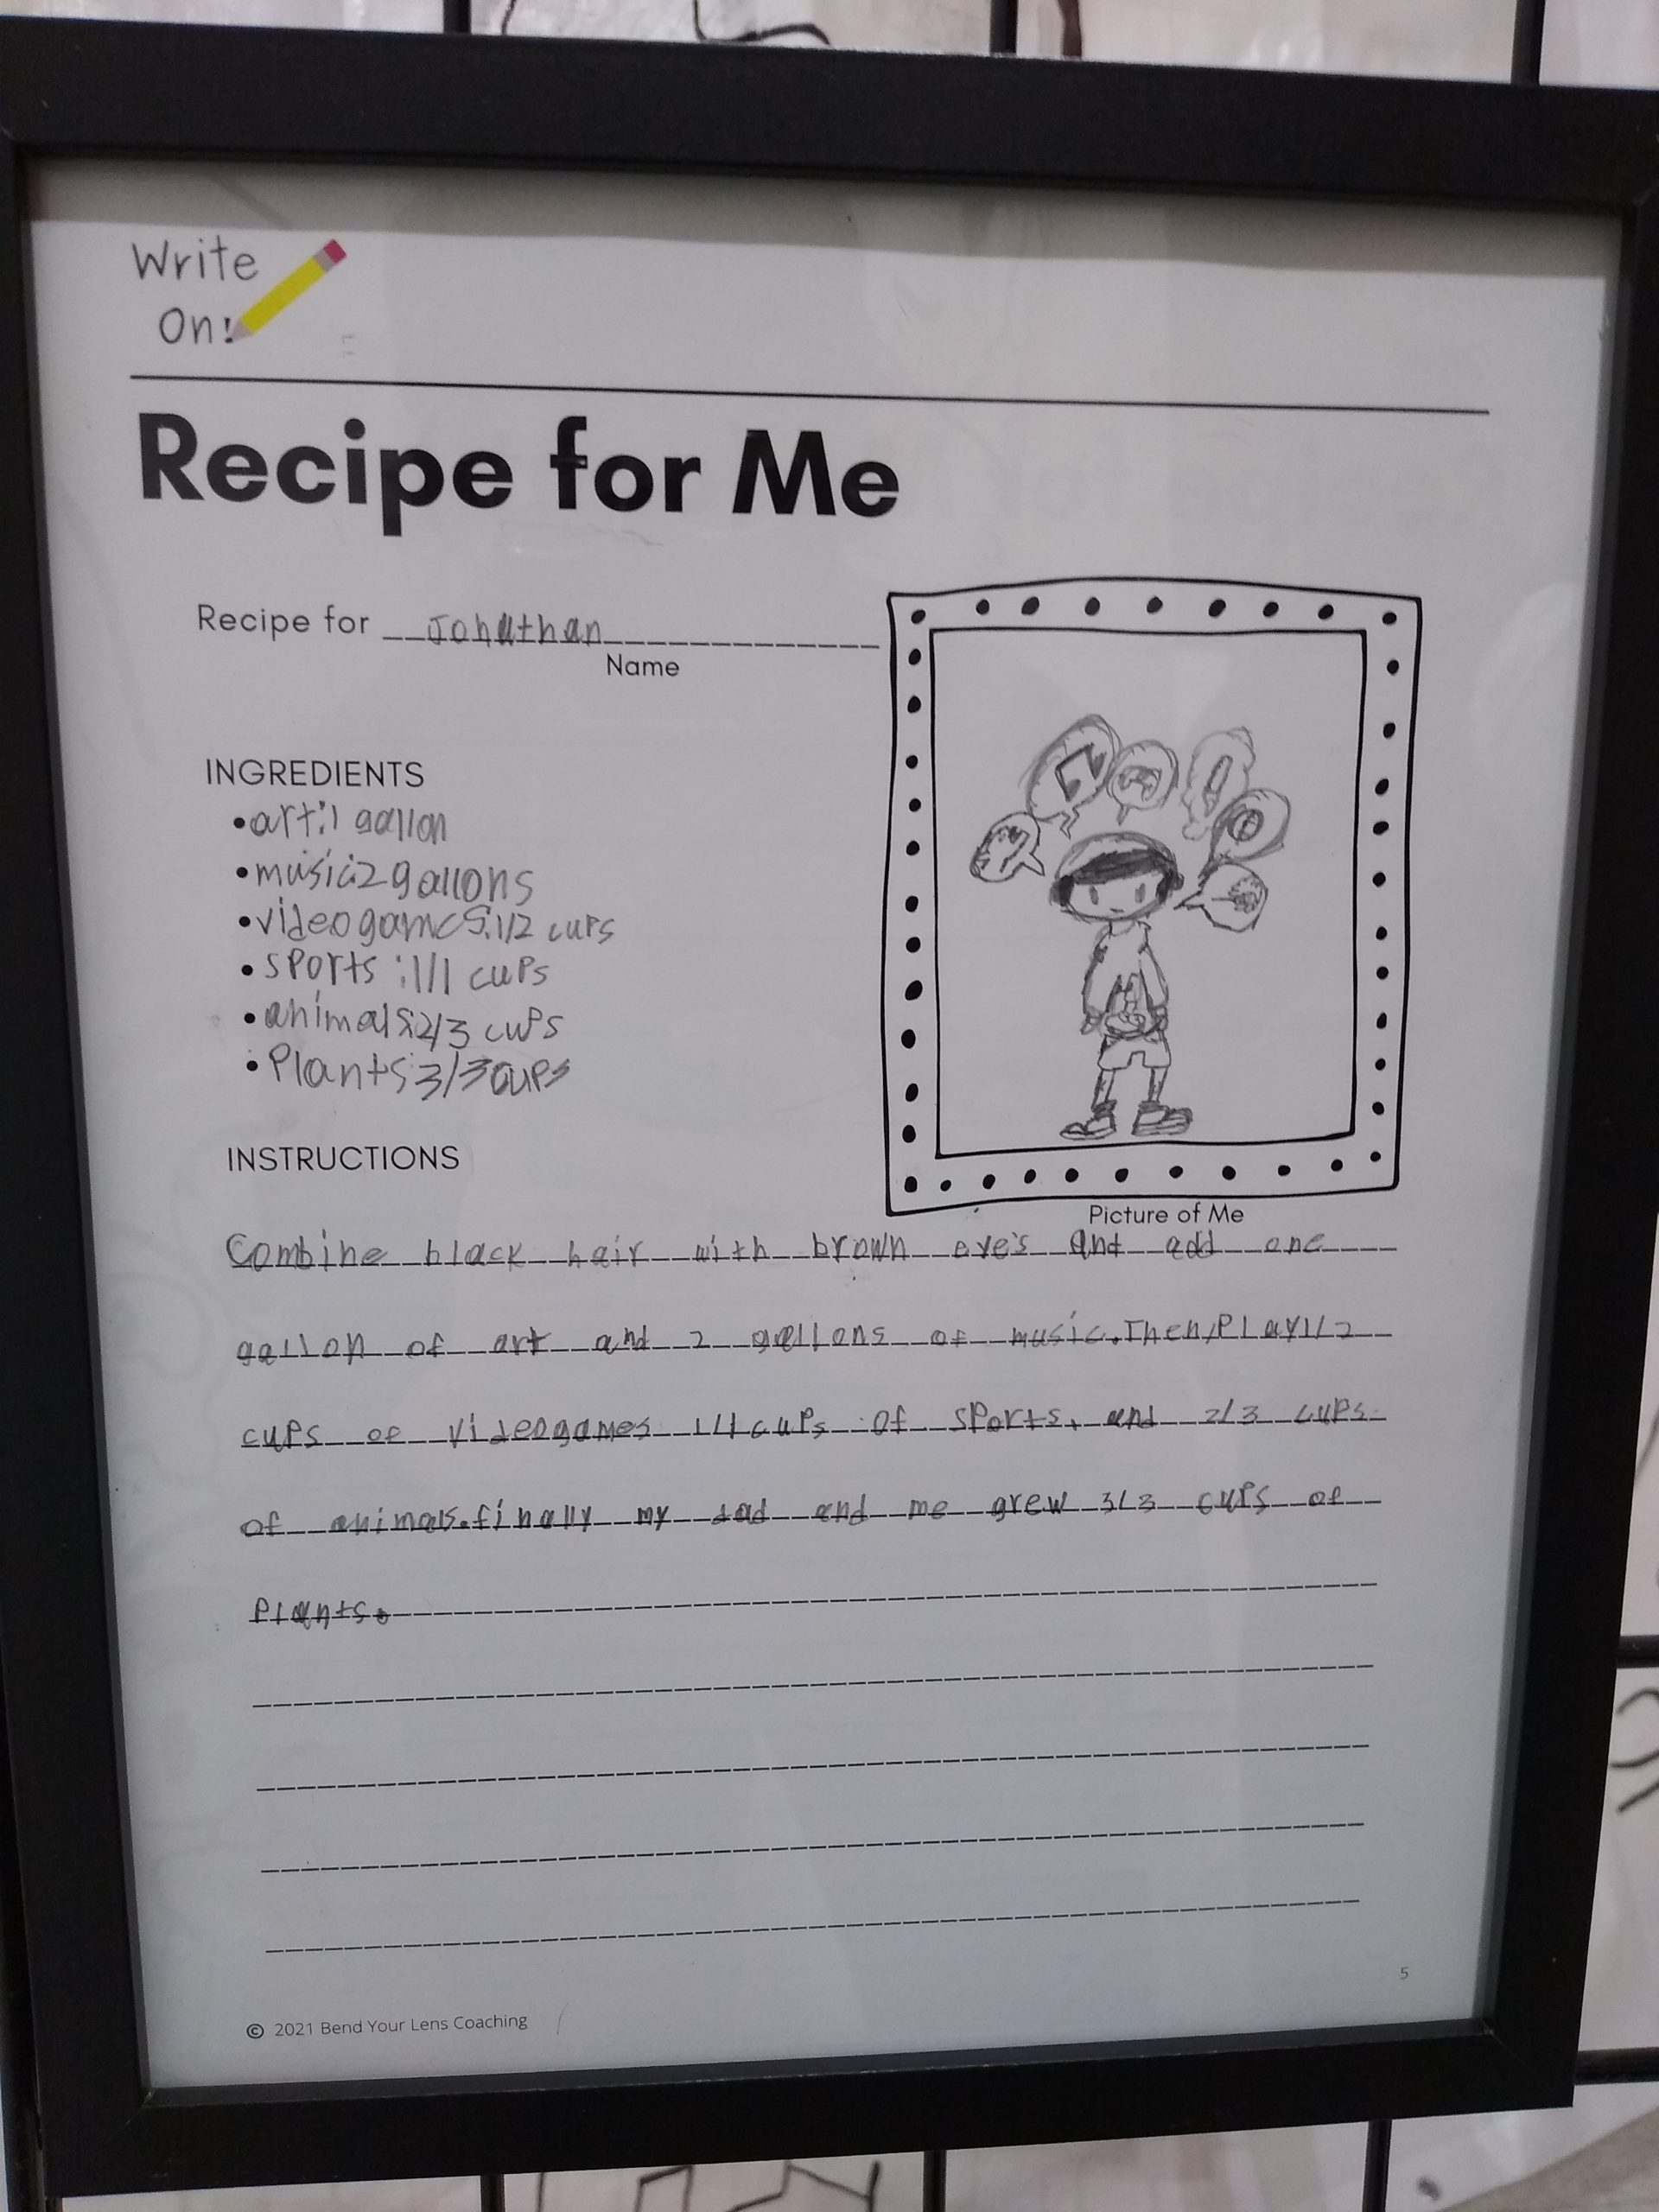 Write
On!
Recipe for Me
Recipe for Johathan
Name
INGREDIENTS
•art:1 gallon
•music:2 gallons
•videogames:1/2 cups
•sports:1/1 cups
•animals:2/3 cups
•Plants:3/3 cups
INSTRUCTIONS
Picture of Me
Combine black hair with brown eye's and add one
gallon of art and 2 gallons of music.Then,Play1/2
cups of videogames 1/1 cups of sports, and 2/3 cups
of animals.finally my dad and me grew 3/3 cups of
Plants.
5
© 2021 Bend Your Lens Coaching